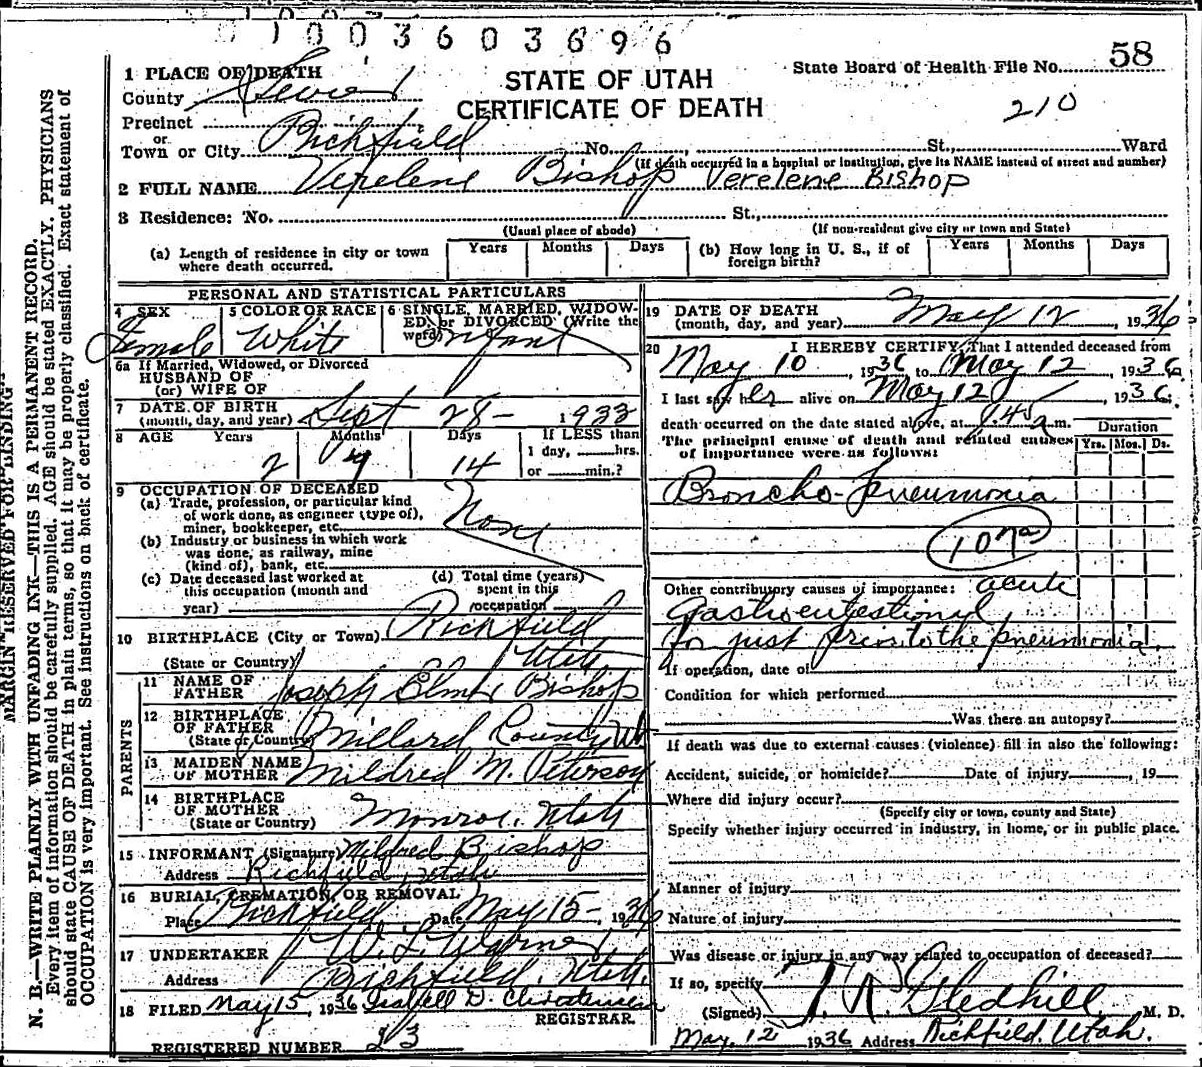 0 1 0 0 3 6 0 3 6 9 6
58
State Board of Health File No.
210
STATE OF UTAH
CERTIFICATE OF DEATH
1 PLACE OF DEATH
County Sevier
Precinct
or
Town or City Richfield No. , St., Ward
(If death occurred in a hospital or institution, give its NAME instead of street and number)
2 FULL NAME Verelene Bishop Verelene Bishop
3 Residence: No. St.,
(Usual place of abode) (If non-resident give city or town and State)
(a) Length of residence in city or town where death occurred. Years Months Days (b) How long in U. S., if of foreign birth? Years Months Days
PERSONAL AND STATISTICAL PARTICULARS
4 SEX Female
5 COLOR OR RACE White
6 SINGLE, MARRIED, WIDOWED, or DIVORCED (Write the word) Infant
6a If Married, Widowed, or Divorced
HUSBAND OF
(or) WIFE OF
7 DATE OF BIRTH
(month, day, and year) Sept 28- 1933
8 AGE Years Months Days If LESS than
2 14 1 day, hrs.
or min.?
9 OCCUPATION OF DECEASED
(a) Trade, profession, or particular kind
of work done, as engineer (type of),
miner, bookkeeper, etc. None
(b) Industry or business in which work
was done, as railway, mine
(kind of), bank, etc.
(c) Date deceased last worked at
this occupation (month and
year)
(d) Total time (years)
spent in this
occupation
10 BIRTHPLACE (City or Town) Richfield
(State or Country) Utah
PARENTS
11 NAME OF
FATHER Joseph Elmer Bishop
12 BIRTHPLACE
OF FATHER
(State or Country) Millard County Ut
13 MAIDEN NAME
OF MOTHER Mildred M. Peterson
14 BIRTHPLACE
OF MOTHER
(State or Country) Monroe, Utah
15 INFORMANT (Signature) Mildred Bishop
Address Richfield, Utah
16 BURIAL, CREMATION, OR REMOVAL
Place Richfield Date May 15-, 1936
17 UNDERTAKER W. L.
Address Richfield, Utah.
18 FILED May 15, 1936 Isabell D. Christensen
REGISTRAR
REGISTERED NUMBER 23
19 DATE OF DEATH
(month, day, and year) May 12, 1936
20 I HEREBY CERTIFY, That I attended deceased from
May 10 1936 to May 12, 1936
I last saw her alive on May 12, 1936.
death occurred on the date stated above, at 1:45 a.m.
The principal cause of death and related causes
of importance were as follows:
Duration
Yrs. Mos. Ds.
Broncho-pneumonia
107a
Other contributory causes of importance: acute
Gastrointestional
for just prior to the pneumonia.
If operation, date of
Condition for which performed
Was there an autopsy?
If death was due to external causes (violence) fill in also the following:
Accident, suicide, or homicide? Date of injury , 19
Where did injury occur?
(Specify city or town, county and State)
Specify whether injury occurred in industry, in home, or in public place.
Manner of injury
Nature of injury
Was disease or injury in any way related to occupation of deceased?
If so, specify
(Signed) T. R. Gledhill M. D.
May. 12 1936 Address Richfield, Utah.
MARGIN RESERVED FOR BINDING
N. B.—WRITE PLAINLY WITH UNFADING INK—THIS IS A PERMANENT RECORD.
Every item of information should be carefully supplied. AGE should be stated EXACTLY. PHYSICIANS
should state CAUSE OF DEATH in plain terms, so that it may be properly classified. Exact statement of
OCCUPATION is very important. See instructions on back of certificate.